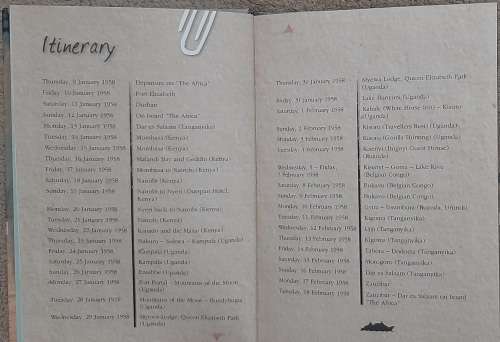 Itinerary
Thursday, 9 January 1958 Departure on "The Africa"
Friday, 10 January 1958 Port Elizabeth
Saturday, 11 January 1958 Durban
Sunday, 12 January 1958 On board "The Africa"
Monday, 13 January 1958 Dar es Salaam (Tanganyika)
Tuesday, 14 January 1958 Mombasa (Kenya)
Wednesday, 15 January 1958 Mombasa (Kenya)
Thursday, 16 January 1958 Malindi Bay and (Kenya)
Friday, 17 January 1958 Mombasa to Nairobi (Kenya)
Saturday, 18 January 1958 Nairobi (Kenya)
Sunday, 19 January 1958 Nairobi to Nyeri (Outspan Hotel,
Kenya)
Monday, 20 January 1958 Nyeri back to Nairobi (Kenya)
Tuesday, 21 January 1958 Nairobi (Kenya)
Wednesday, 22 January 1958 Nairobi and the (Kenya)
Thursday, 23 January 1958 Nakuru – – Kampala (Uganda)
Friday, 24 January 1958 Kampala (Uganda)
Saturday, 25 January 1958 Kampala (Uganda)
Sunday, 26 January 1958 Entebbe (Uganda)
Monday, 27 January 1958 Fort Portal – Mountains of the Moon
(Uganda)
Tuesday, 28 January 1958 Mountains of the Moon –
(Uganda)
Wednesday, 29 January 1958 Mweya Lodge, Queen Elizabeth Park
(Uganda)
Thursday, 30 January 1958 Mweya Lodge, Queen Elizabeth Park
(Uganda)
Friday, 31 January 1958 Lake (Uganda)
Saturday, 1 February 1958 Kabale (White Horse Inn) – Kisoro
(Uganda)
Sunday, 2 February 1958 Kisoro (Travellers Rest) (Uganda)
Monday, 3 February 1958 Kisoro (Gorilla) (Uganda)
Tuesday, 4 February 1958 Guest House)
Wednesday, 5 – Friday,
7 February 1958 – Goma – Lake Kivu
(Belgian Congo)
Saturday, 8 February 1958 Bukavu (Belgian Congo)
Sunday, 9 February 1958 Bukavu (Belgian Congo)
Monday, 10 February 1958 – Usumbura
Tuesday, 11 February 1958 Kigoma (Tanganyika)
Wednesday, 12 February 1958 Ujiji (Tanganyika)
Thursday, 13 February 1958 Kigoma (Tanganyika)
Friday, 14 February 1958 Tabora – Dodoma (Tanganyika)
Saturday, 15 February 1958 Morogoro (Tanganyika)
Sunday, 16 February 1958 Dar es Salaam (Tanganyika)
Monday, 17 February 1958 Zanzibar
Tuesday, 18 February 1958 Zanzibar – Dar es Salaam on board
"The Africa"